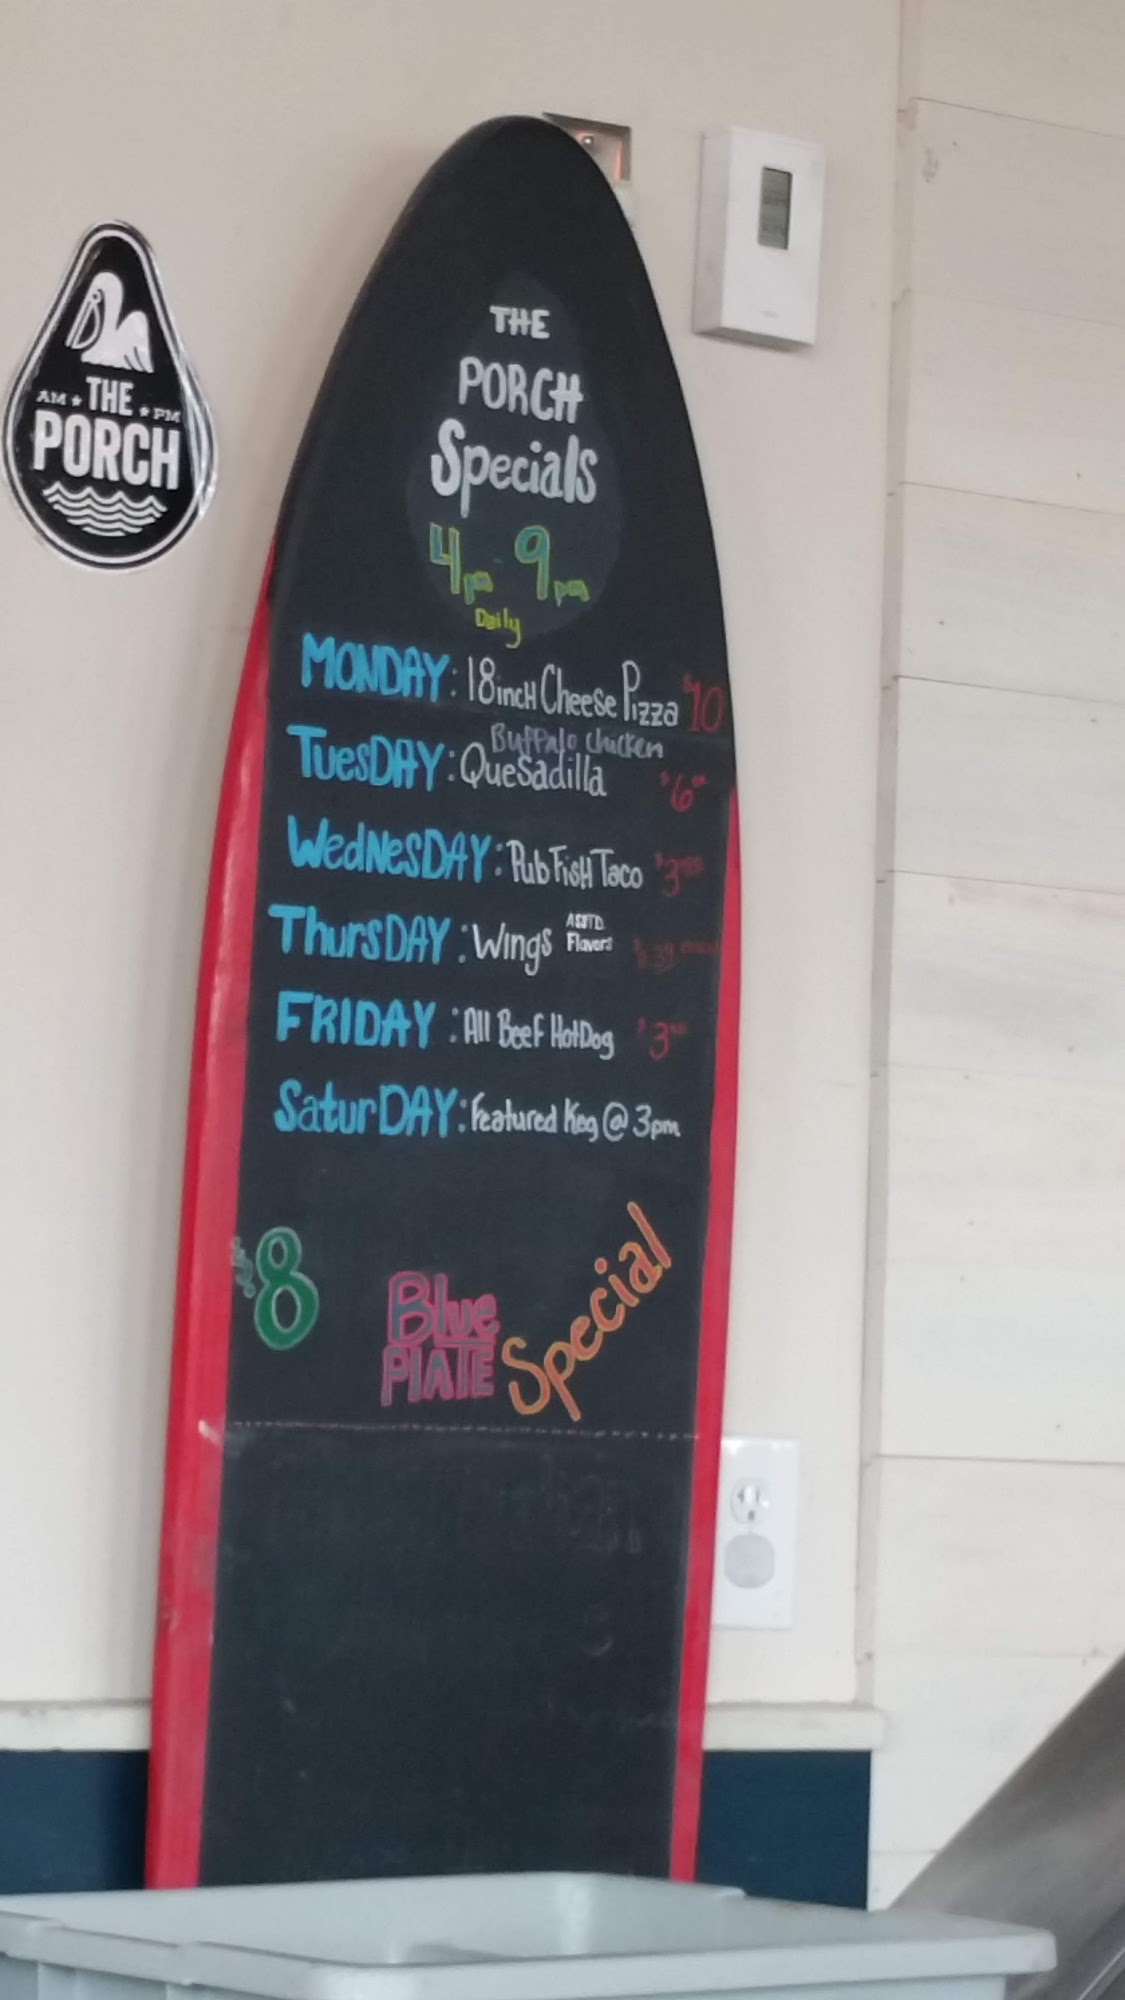 THE
AM ★ ★ PM
PORCH
THE
PORCH
Specials
4pm 9pm
Daily
MONDAY: 18 incH Cheese Pizza $10
Buffalo Chicken
TuesDAY: Quesadilla $6
WedNesDAY: Pub FisH Taco $3
ASSTD.
ThursDAY: Wings Flavors
FRIDAY: All Beef HotDog $3
SaturDAY: Featured Keg @ 3pm
$8 Blue PlATE Special